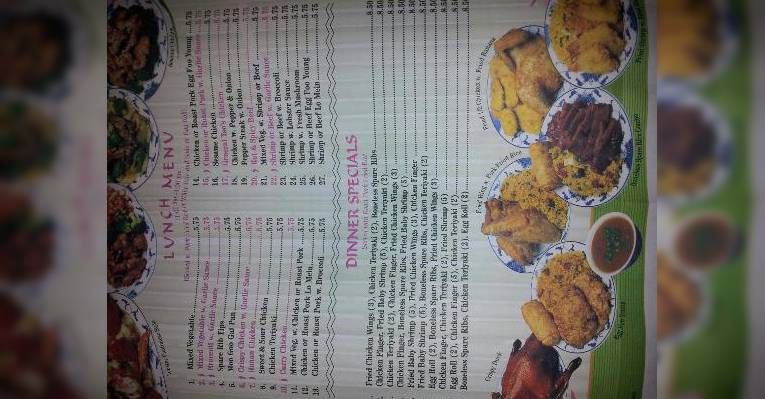 LUNCH MENU
1. Mixed Vegetable 5.75
2. Mixed Vegetable w. Garlic Sauce 5.75
3. Broccoli w. Garlic Sauce 5.75
4. Spare Rib Tips 5.75
5. Moo Goo Gai Pan 5.75
6. Crispy Chicken w. Garlic Sauce 5.75
7. Hunan Chicken 5.75
8. Sweet & Sour Chicken 5.75
9. Chicken Teriyaki 5.75
10. Curry Chicken 5.75
11. Mixed Veg. w. Chicken or Roast Pork 5.75
12. Chicken or Roast Pork Lo Mein 5.75
13. Chicken or Roast Pork w. Broccoli 5.75
14. Chicken or Roast Pork Egg Foo Young 5.75
15. Chicken or Roast Pork w. Garlic Sauce 5.75
16. Sesame Chicken 5.75
17. General Tso's Chicken 5.75
18. Chicken w. Pepper & Onion 5.75
19. Pepper Steak w. Onion 5.75
20. Hot & Spicy Beef 5.75
21. Mixed Veg. w. Shrimp or Beef 5.75
22. Shrimp or Beef w. Garlic Sauce 5.75
23. Shrimp or Beef w. Broccoli 5.75
24. Shrimp w. Lobster Sauce 5.75
25. Shrimp w. Fresh Mushroom 5.75
26. Shrimp or Beef Egg Foo Young 5.75
27. Shrimp or Beef Lo Mein 5.75
DINNER SPECIALS
Fried Chicken Wings (3), Chicken Teriyaki (2), Boneless Spare Ribs 8.50
Chicken Finger, Fried Baby Shrimp (5), Chicken Teriyaki (2) 8.50
Chicken Teriyaki (2), Chicken Finger, Fried Chicken Wings (3) 8.50
Chicken Finger, Boneless Spare Ribs, Fried Baby Shrimp (5) 8.50
Fried Baby Shrimp (5), Fried Chicken Wings (3), Chicken Finger 8.50
Fried Baby Shrimp (5), Boneless Spare Ribs, Chicken Teriyaki (2) 8.50
Egg Roll (2), Boneless Spare Ribs, Fried Chicken Wings (3) 8.50
Chicken Finger, Chicken Teriyaki (2), Fried Shrimp (5) 8.50
Egg Roll (2), Chicken Finger (5), Chicken Teriyaki (2) 8.50
Boneless Spare Ribs, Chicken Teriyaki (2), Egg Roll (2) 8.50
Fried 1/2 Chicken w. Fried Banana
Boneless Spare Ribs Combo
Egg Foo Young
Crispy Duck